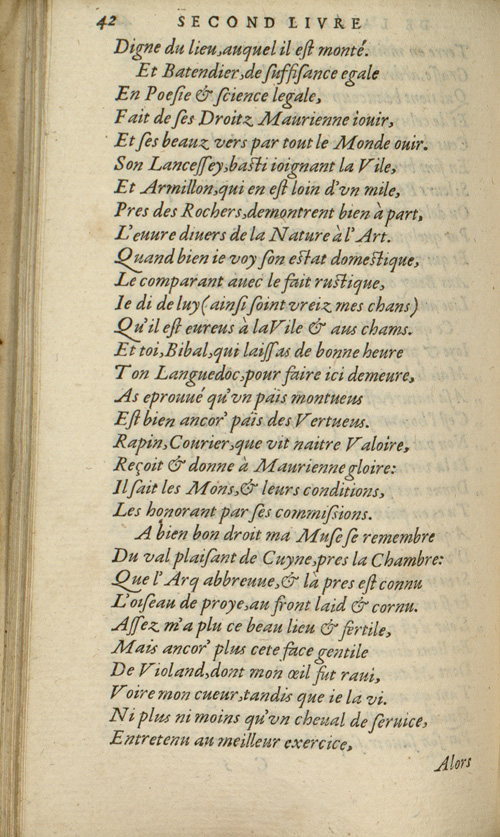 42 SECOND LIVRE
Digne du lieu, auquel il eſt monté.
Et Batendier, de ſuffiſance egale
En Poeſie & ſcience legale,
Fait de ſes Droitz Maurienne iouir,
Et ſes beauz vers par tout le Monde ouir.
Son Lanceſſey, baſti ioignant la Vile,
Et Armillon, qui en eſt loin d'vn mile,
Pres des Rochers, demontrent bien à part,
L'euure diuers de la Nature à l'Art.
Quand bien ie voy ſon eſtat domeſtique,
Le comparant auec le fait ruſtique,
Ie di de luy (ainſi ſoint vreiz mes chans)
Qu'il eſt eureus à la Vile & aus chams.
Et toi, Bibal, qui laiſſas de bonne heure
Ton Languedoc, pour faire ici demeure,
As eprouué qu'vn païs montueus
Eſt bien ancor' païs des Vertueus.
Rapin, Courier, que vit naitre Valoire,
Reçoit & donne à Maurienne gloire:
Il ſait les Mons, & leurs conditions,
Les honorant par ſes commiſsions.
A bien bon droit ma Muſe ſe remembre
Du val plaiſant de Cuyne, pres la Chambre:
Que l'Arq abbreuue, & là pres eſt connu
L'oiſeau de proye, au front laid & cornu.
Aſſez m'a plu ce beau lieu & fertile,
Mais ancor' plus cete face gentile
De Violand, dont mon œil fut raui,
Voire mon cueur, tandis que ie la vi.
Ni plus ni moins qu'vn cheual de ſeruice,
Entretenu au meilleur exercice,
Alors